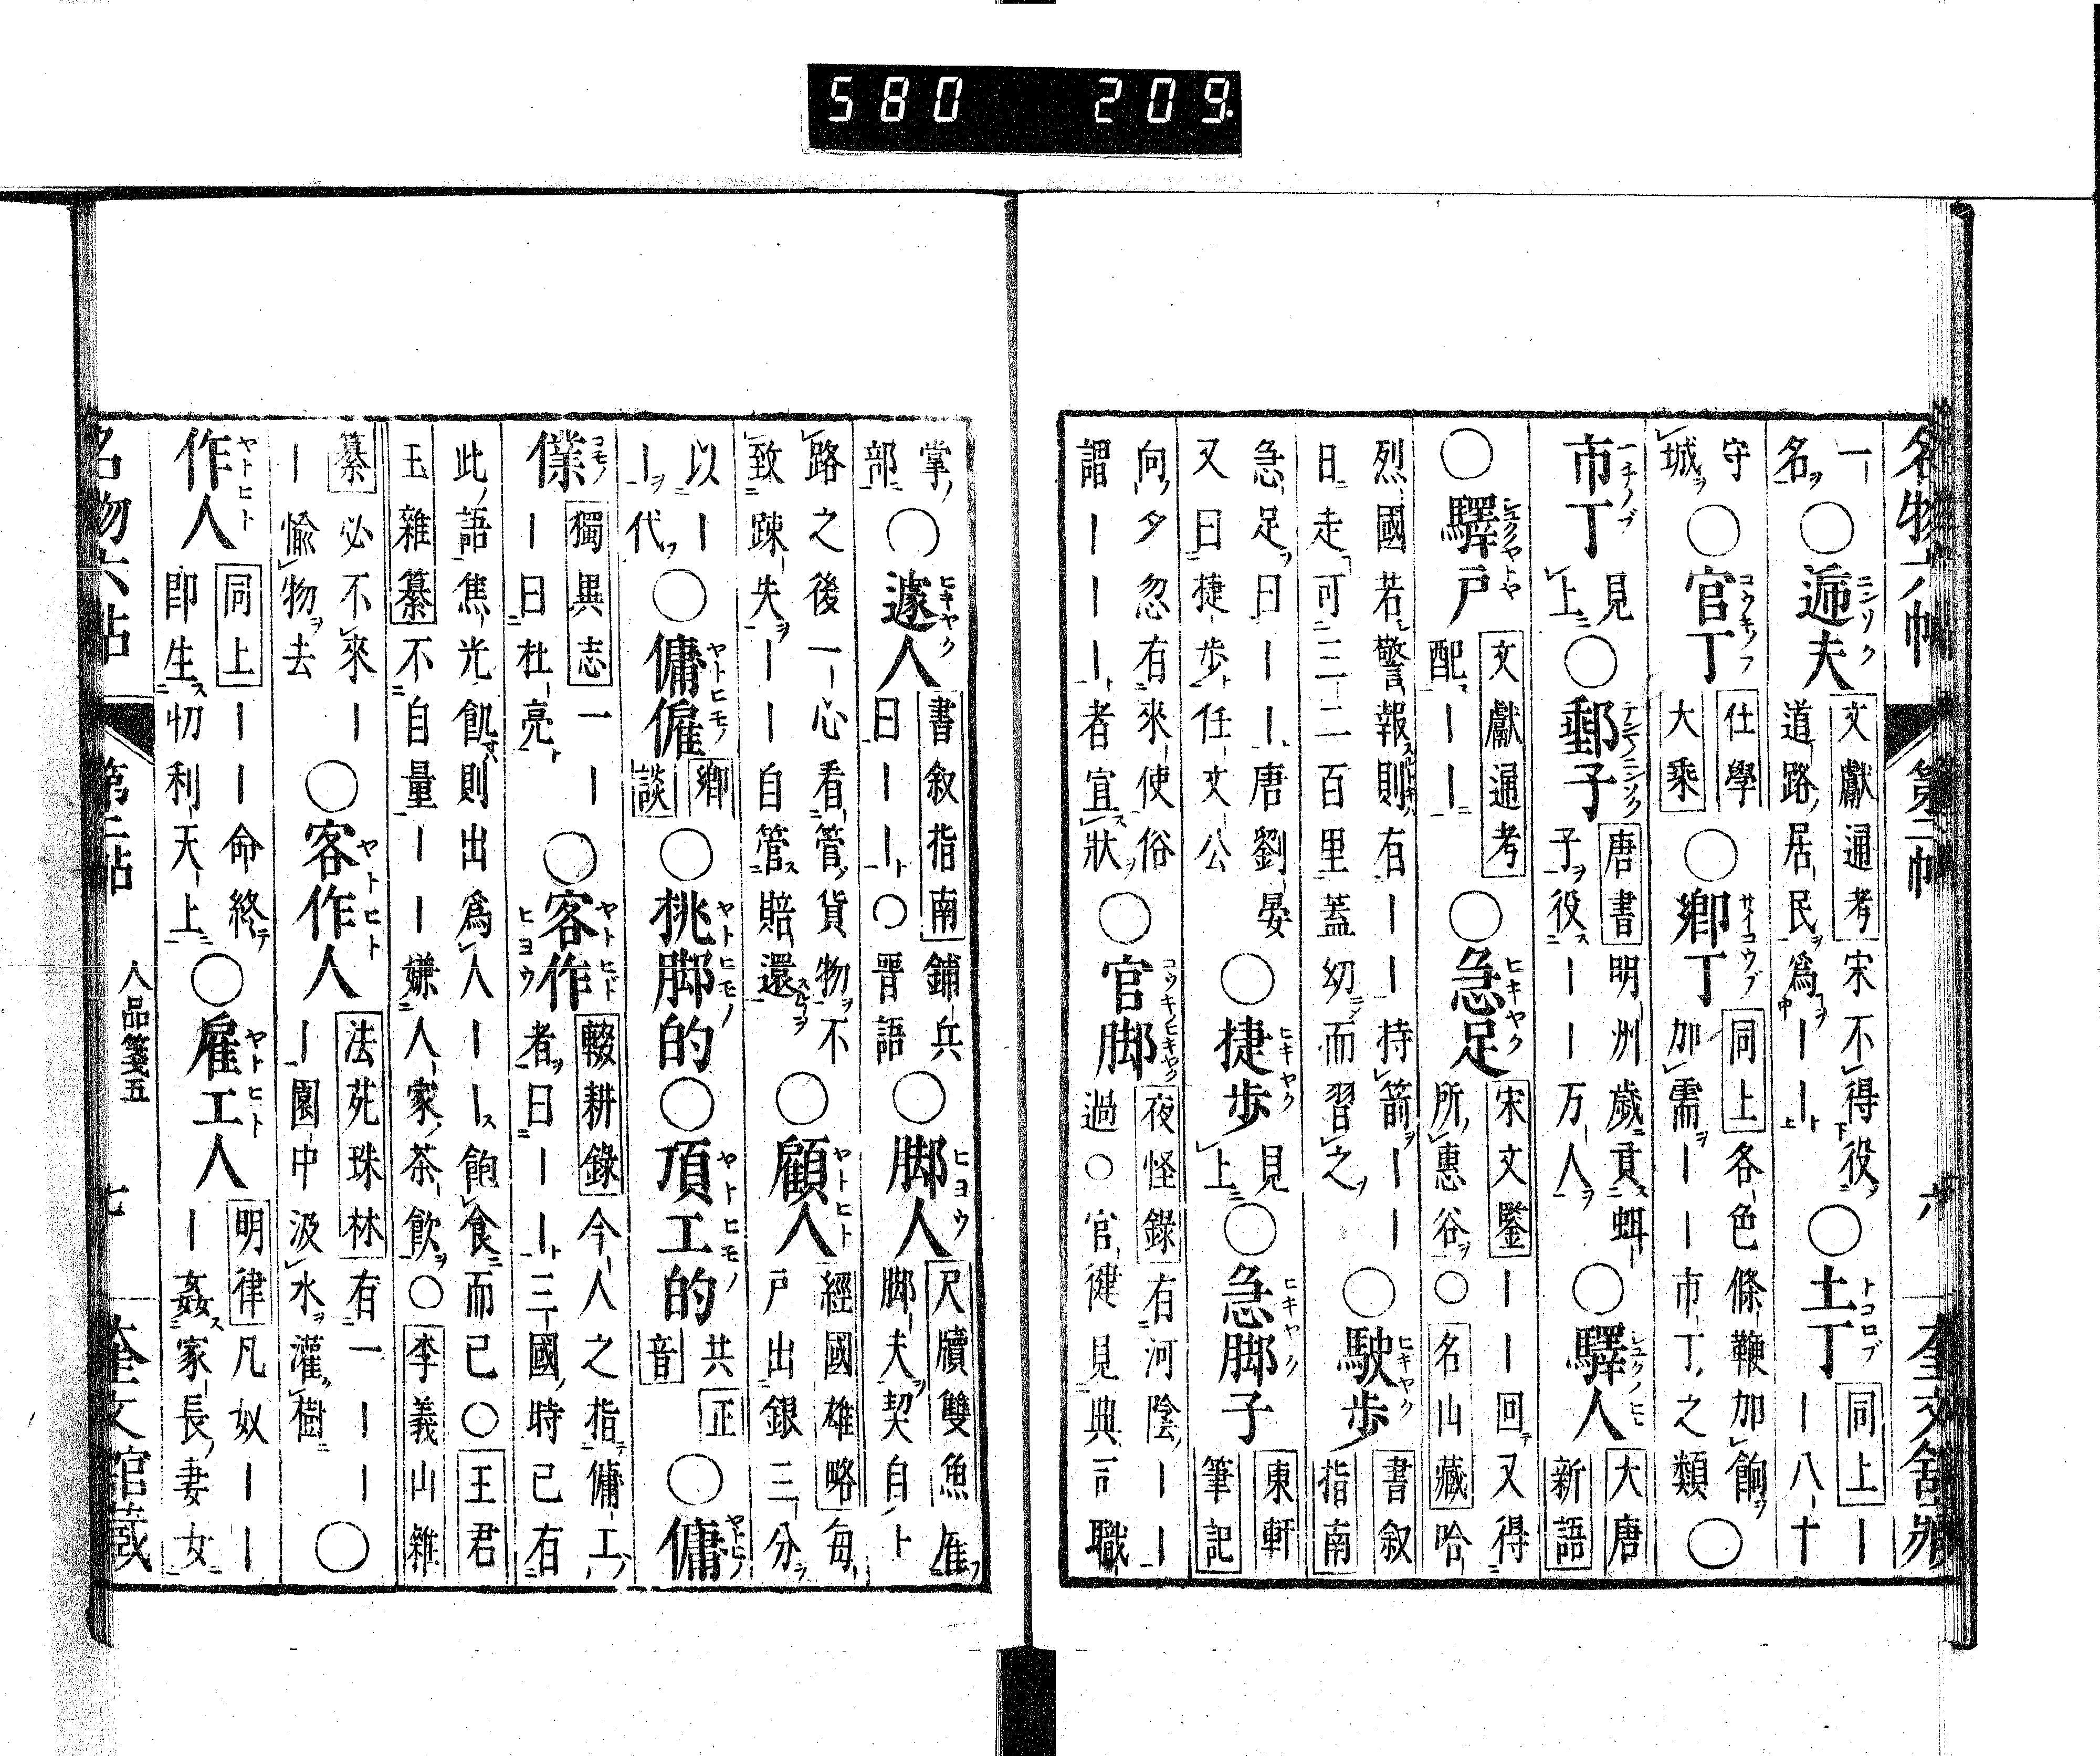 580 209
名物六帖 第二帖 六 奎文館藏
一｜名 ○遞夫 文獻通考 宋不得役道路居民爲｜｜ ○土丁 同上 ｜｜八十
守城 ○官丁 仕學大乘 ○鄉丁 同上 各色條鞭加餉加需｜｜市丁之類 ○
市丁 見上 ○郵子 唐書 明州歲貢蚶｜子役｜｜万人 ○驛人 大唐新語
○驛戸 文獻通考 配｜｜ ○急足 宋文鑒 ｜｜回又得所惠谷 ○ 名山藏 哈
烈國若警報則有｜｜持箭｜｜日走可三二百里蓋幼而習之 ○駛步 書叙指南
急足曰｜｜唐劉晏又曰捷步任文公 ○捷步 見上 ○急脚子 東軒筆記
向夕忽有來使俗謂｜｜｜者宜狀 ○官脚 夜怪錄 有河陰｜｜過○官健見典職
掌部 ○遽人 書叙指南 鋪兵曰｜｜○晋語 ○脚人 尺牘雙魚 雇脚夫契自卜
路之後一心看管貨物不致踈失｜｜自管賠還 ○顧人 經國雄略 每戸出銀三分
以｜｜代 ○傭僱 鄉談 ○挑脚的○頂工的 共正音 ○傭
僕 獨異志 一｜｜曰杜亮 ○客作 輟耕錄 今人之指傭工者曰｜｜三國時已有
此語焦光飢則出爲人｜｜飽食而已○ 王君玉雜纂 不自量｜｜嫌人家茶飲○ 李義山雜
纂 必不來｜｜愉物去 ○客作人 法苑珠林 有一｜｜｜園中汲水灌樹 ○
作人 同上 ｜｜命終即生忉利天上 ○雇工人 明律 凡奴｜｜｜姦家長妻女
名物六帖 第二帖 人品箋五 七 奎文館藏